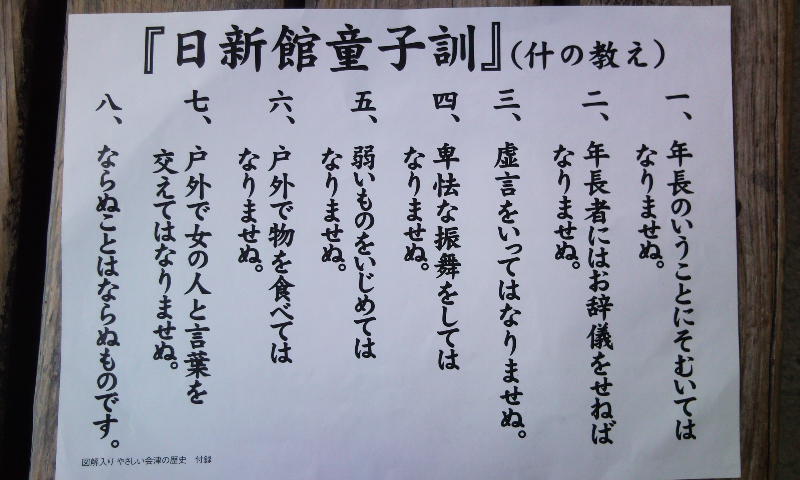 『日新館童子訓』(什の教え)
一、年長のいうことにそむいては
なりませぬ。
二、年長者にはお辞儀をせねば
なりませぬ。
三、虚言をいってはなりませぬ。
四、卑怯な振舞をしては
なりませぬ。
五、弱いものをいじめては
なりませぬ。
六、戸外で物を食べては
なりませぬ。
七、戸外で女の人と言葉を
交えてはなりませぬ。
八、ならぬことはならぬものです。
図解入り やさしい会津の歴史 付録